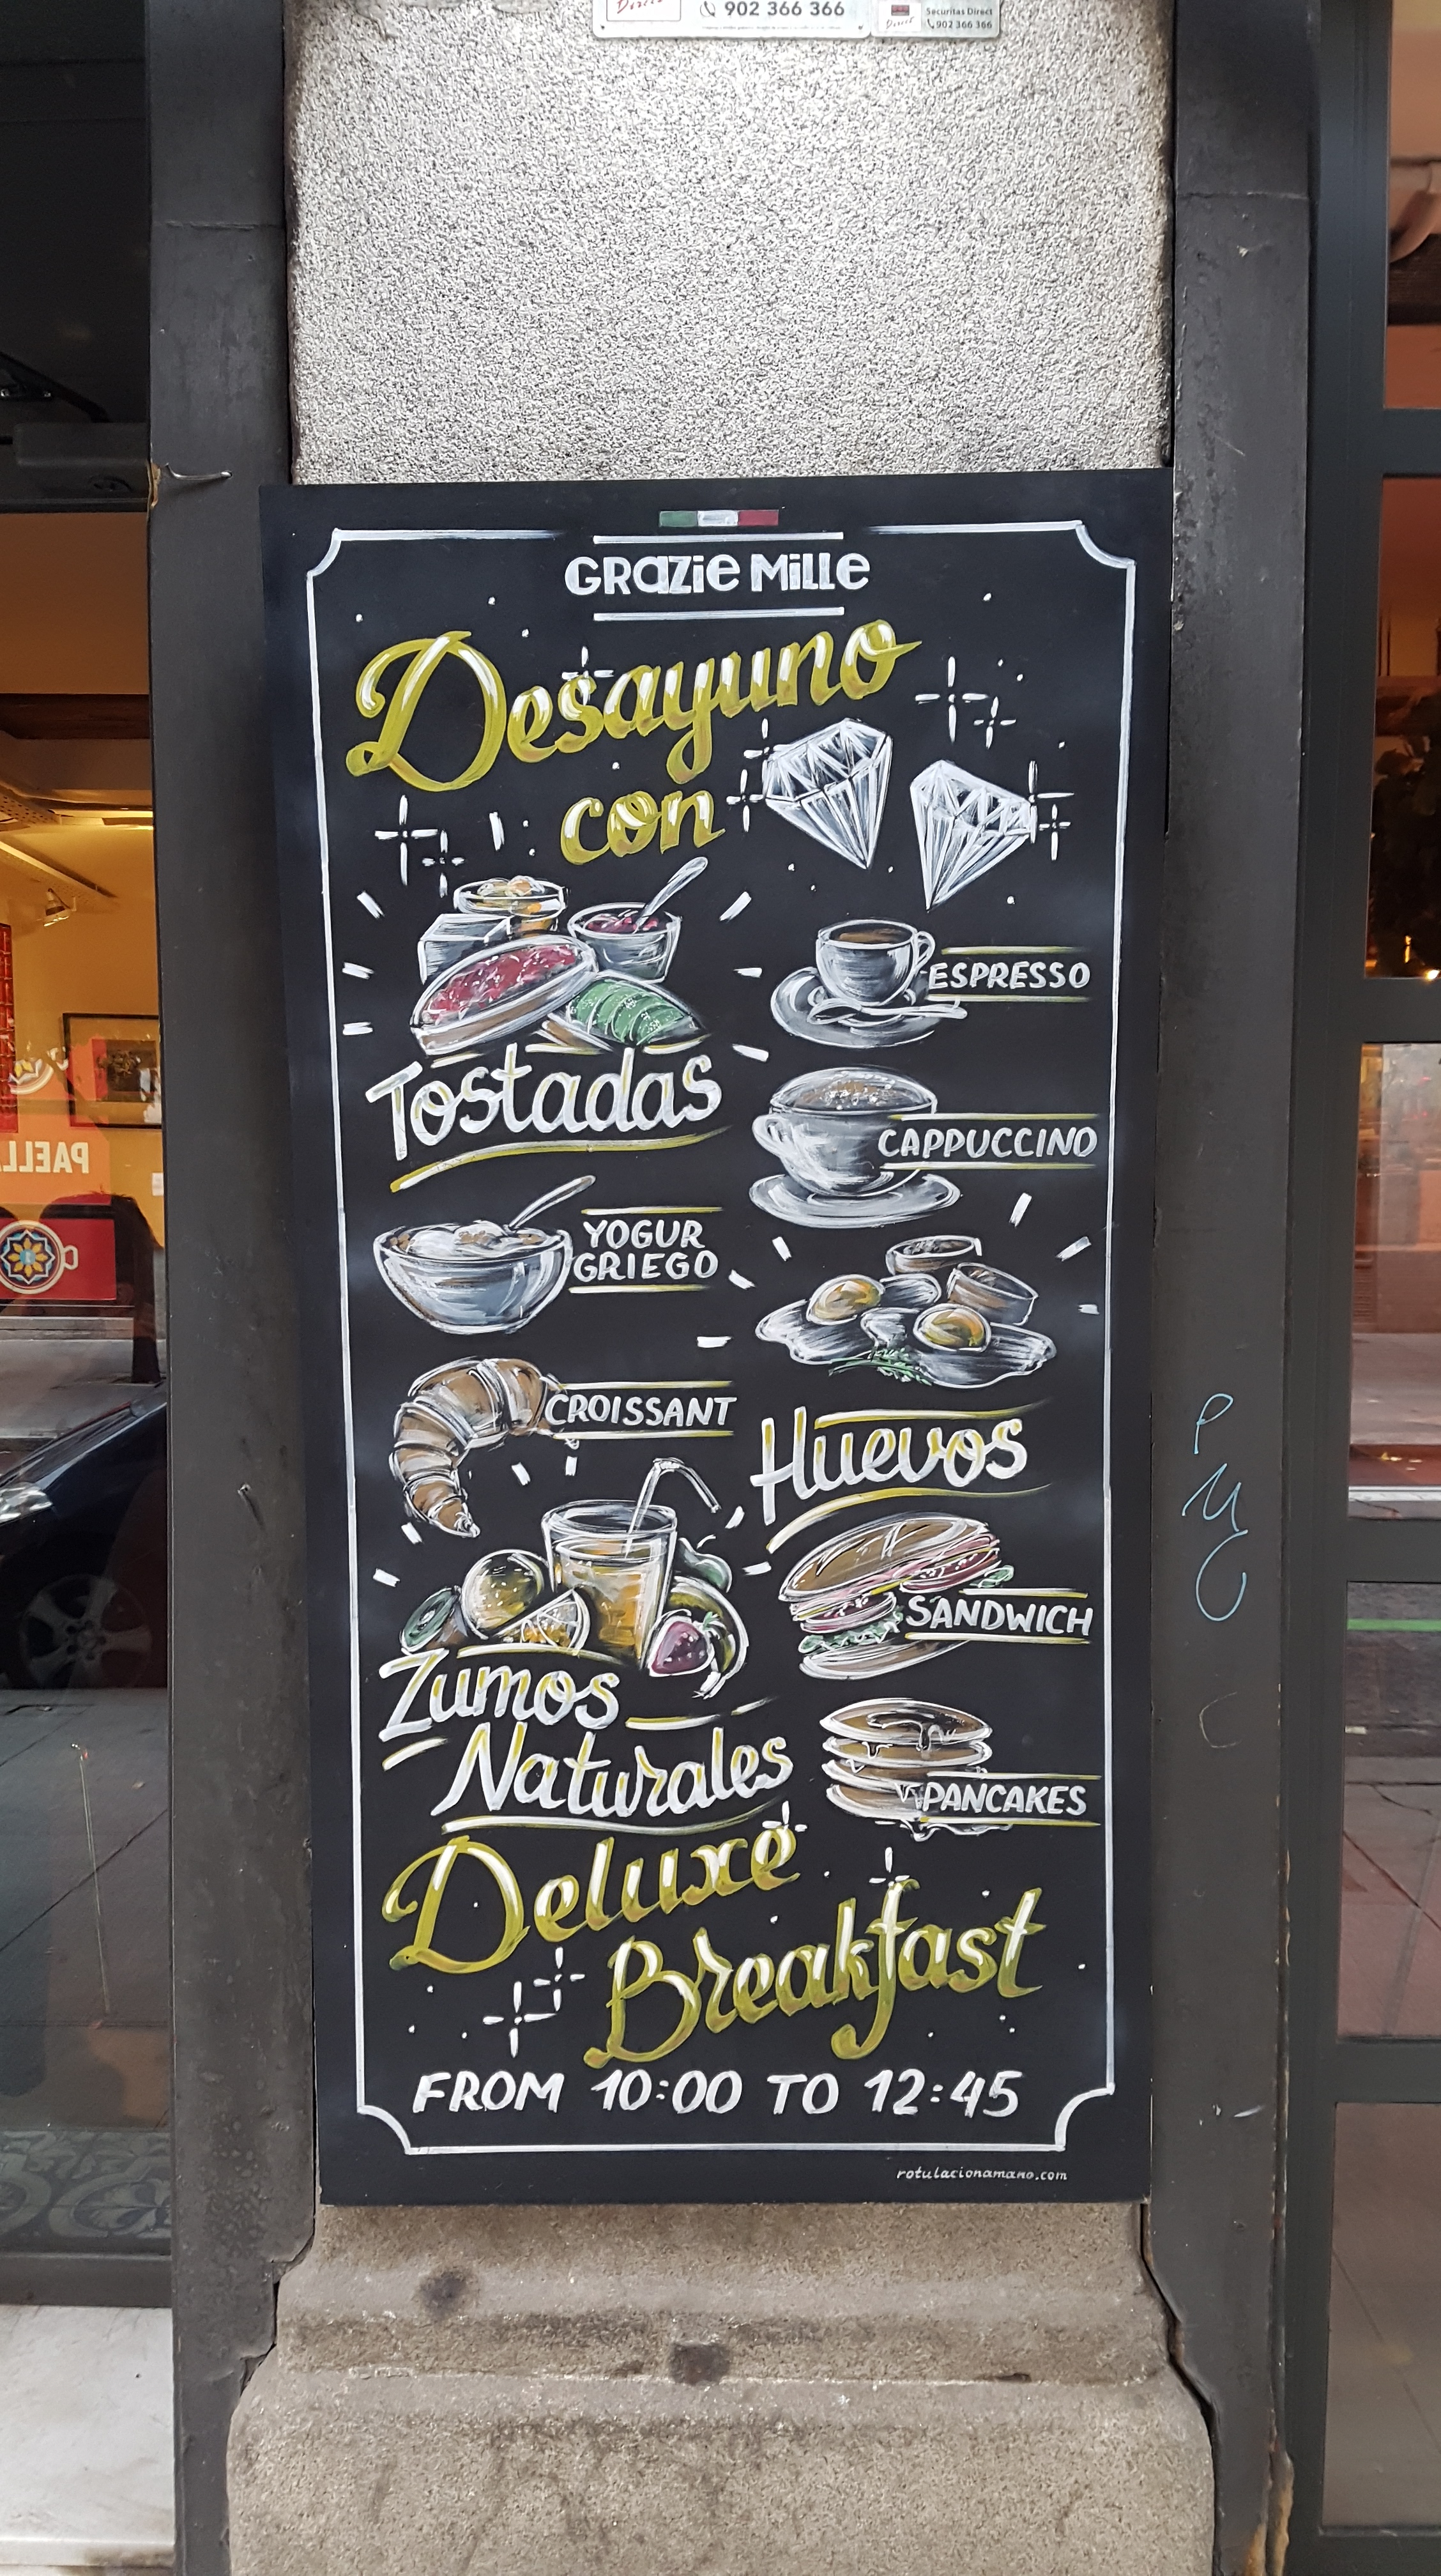 902 366 366
Securitas Direct
902 366 366
GRAZIE MILLE
Desayuno
con
Tostadas
YOGUR
GRIEGO
CROISSANT
Zumos
Naturales
ESPRESSO
CAPPUCCINO
Huevos
SANDWICH
PANCAKES
Deluxe
Breakfast
FROM 10:00 TO 12:45
rotulacionamano.com